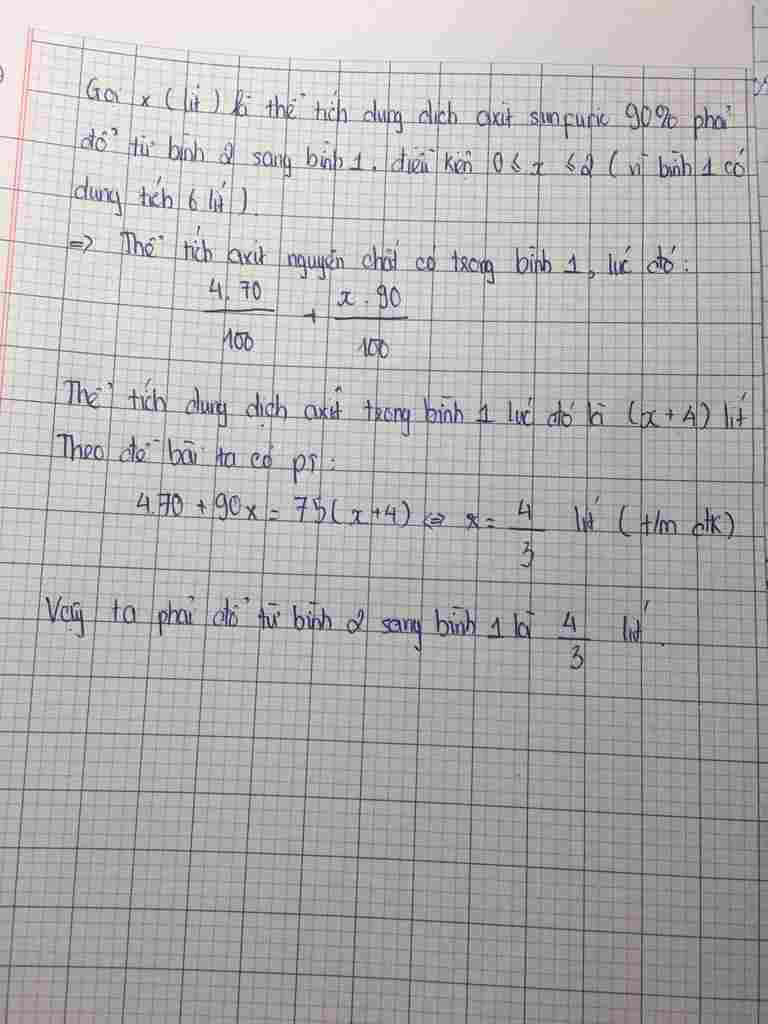 Gọi x (lít) là thể tích dung dịch axit sunfuric 90% phải
đổ từ bình 2 sang bình 1. điều kiện 0 ≤ x ≤ 2 (vì bình 1 có
dung tích 6 lít).
=> Thể tích axit nguyên chất có trong bình 1, lúc đó:
4.70/100 + x.90/100
Thể tích dung dịch axit trong bình 1 lúc đó là (x+4) lít
Theo đề bài ta có pt:
4.70 + 90x = 75(x+4) <=> x = 4/3 lít (t/m đk)
Vậy ta phải đổ từ bình 2 sang bình 1 là 4/3 lít.